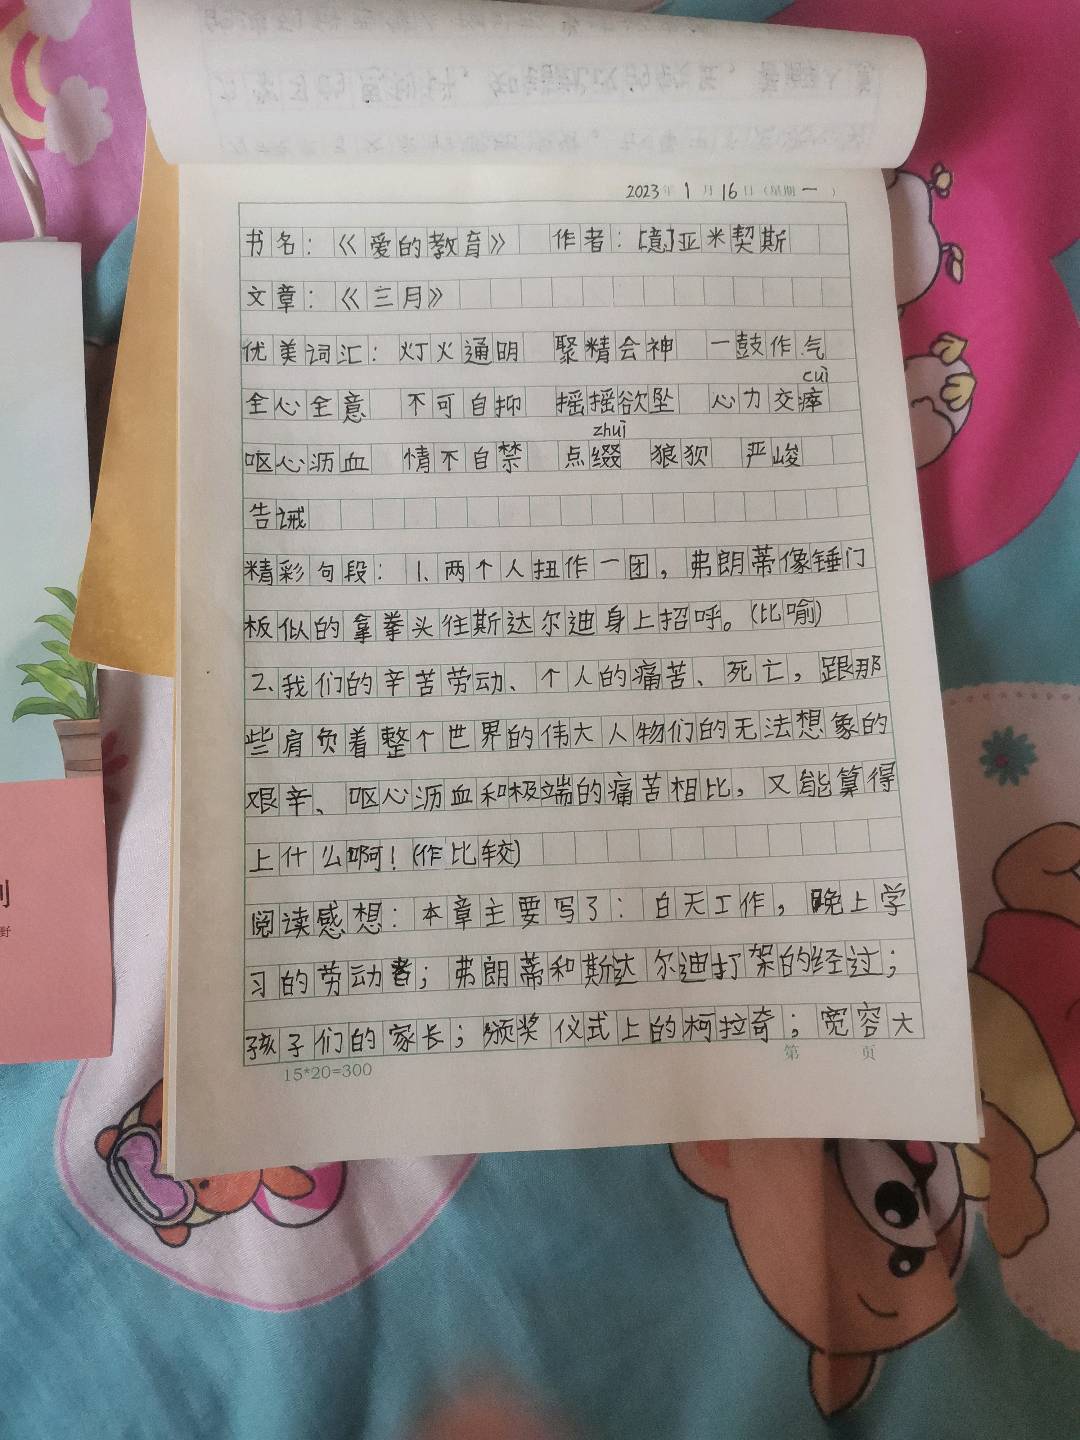 2023年1月16日(星期一)
书名:《爱的教育》 作者:[意]亚米契斯
文章:《三月》
优美词汇:灯火通明 聚精会神 一鼓作气
cuì
全心全意 不可自抑 摇摇欲坠 心力交瘁
zhuì
呕心沥血 情不自禁 点缀 狼狈 严峻
告诫
精彩句段:1.两个人扭作一团,弗朗蒂像锤门
板似的拿拳头往斯达尔迪身上招呼。(比喻)
2.我们的辛苦劳动、个人的痛苦、死亡,跟那
些肩负着整个世界的伟大人物们的无法想象的
艰辛、呕心沥血和极端的痛苦相比,又能算得
上什么啊!(作比较)
阅读感想:本章主要写了:白天工作,晚上学
习的劳动者;弗朗蒂和斯达尔迪打架的经过;
孩子们的家长;颁奖仪式上的柯拉奇;宽容大
15*20=300
第 页
野